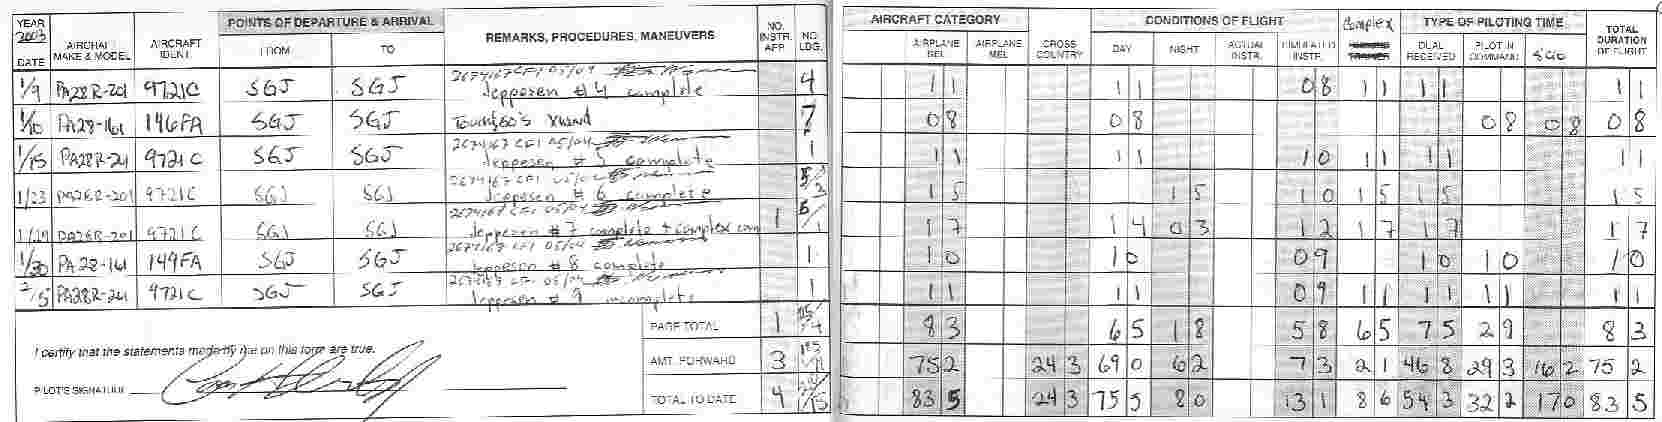 YEAR 2003 DATE AIRCRAFT MAKE & MODEL AIRCRAFT IDENT. POINTS OF DEPARTURE & ARRIVAL FROM TO REMARKS, PROCEDURES, MANEUVERS NO. INSTR. APP. NO. LDG. AIRCRAFT CATEGORY AIRPLANE SEL AIRPLANE MEL CROSS COUNTRY CONDITIONS OF FLIGHT DAY NIGHT ACTUAL INSTR. SIMULATED INSTR. Complex TYPE OF PILOTING TIME DUAL RECEIVED PILOT IN COMMAND solo TOTAL DURATION OF FLIGHT
2674167 CFI 05/04
1/9 PA28R-201 9721C SGJ SGJ Jeppesen #4 complete 4 1 1 1 1 0 8 1 1 1 1 1 1
1/10 PA28-161 146FA SGJ SGJ Touch&go's 7 0 8 0 8 0 8 0 8 0 8
2674167 CFI 05/04
1/15 PA28R-201 9721C SGJ SGJ Jeppesen #5 complete 1 1 1 1 1 1 0 1 1 1 1 1 1
2674167 CFI 05/04
1/23 PA28R-201 9721C SGJ SGJ Jeppesen #6 complete 1 5 1 5 1 0 1 5 1 5 1 5
2674167 CFI 05/04
1/29 PA28R-201 9721C SGJ SGJ Jeppesen #7 complete + complex 1 1 7 1 4 0 3 1 2 1 7 1 7 1 7
2674167 CFI 05/04
1/30 PA28-161 149FA SGJ SGJ Jeppesen #8 complete 1 1 0 1 0 0 9 1 0 1 0 1 0
2674167 CFI 05/04
2/5 PA28R-201 9721C SGJ SGJ Jeppesen #9 incomplete 1 1 1 1 1 0 9 1 1 1 1 1 1 1 1
PAGE TOTAL 1 8 3 6 5 1 8 5 8 6 5 7 5 2 9 8 3
I certify that the statements made by me on this form are true.
AMT. FORWARD 3 75 2 24 3 69 0 6 2 7 3 2 1 46 8 29 3 16 2 75 2
PILOT'S SIGNATURE
TOTAL TO DATE 4 83 5 24 3 75 5 8 0 13 1 8 6 54 3 32 2 17 0 83 5